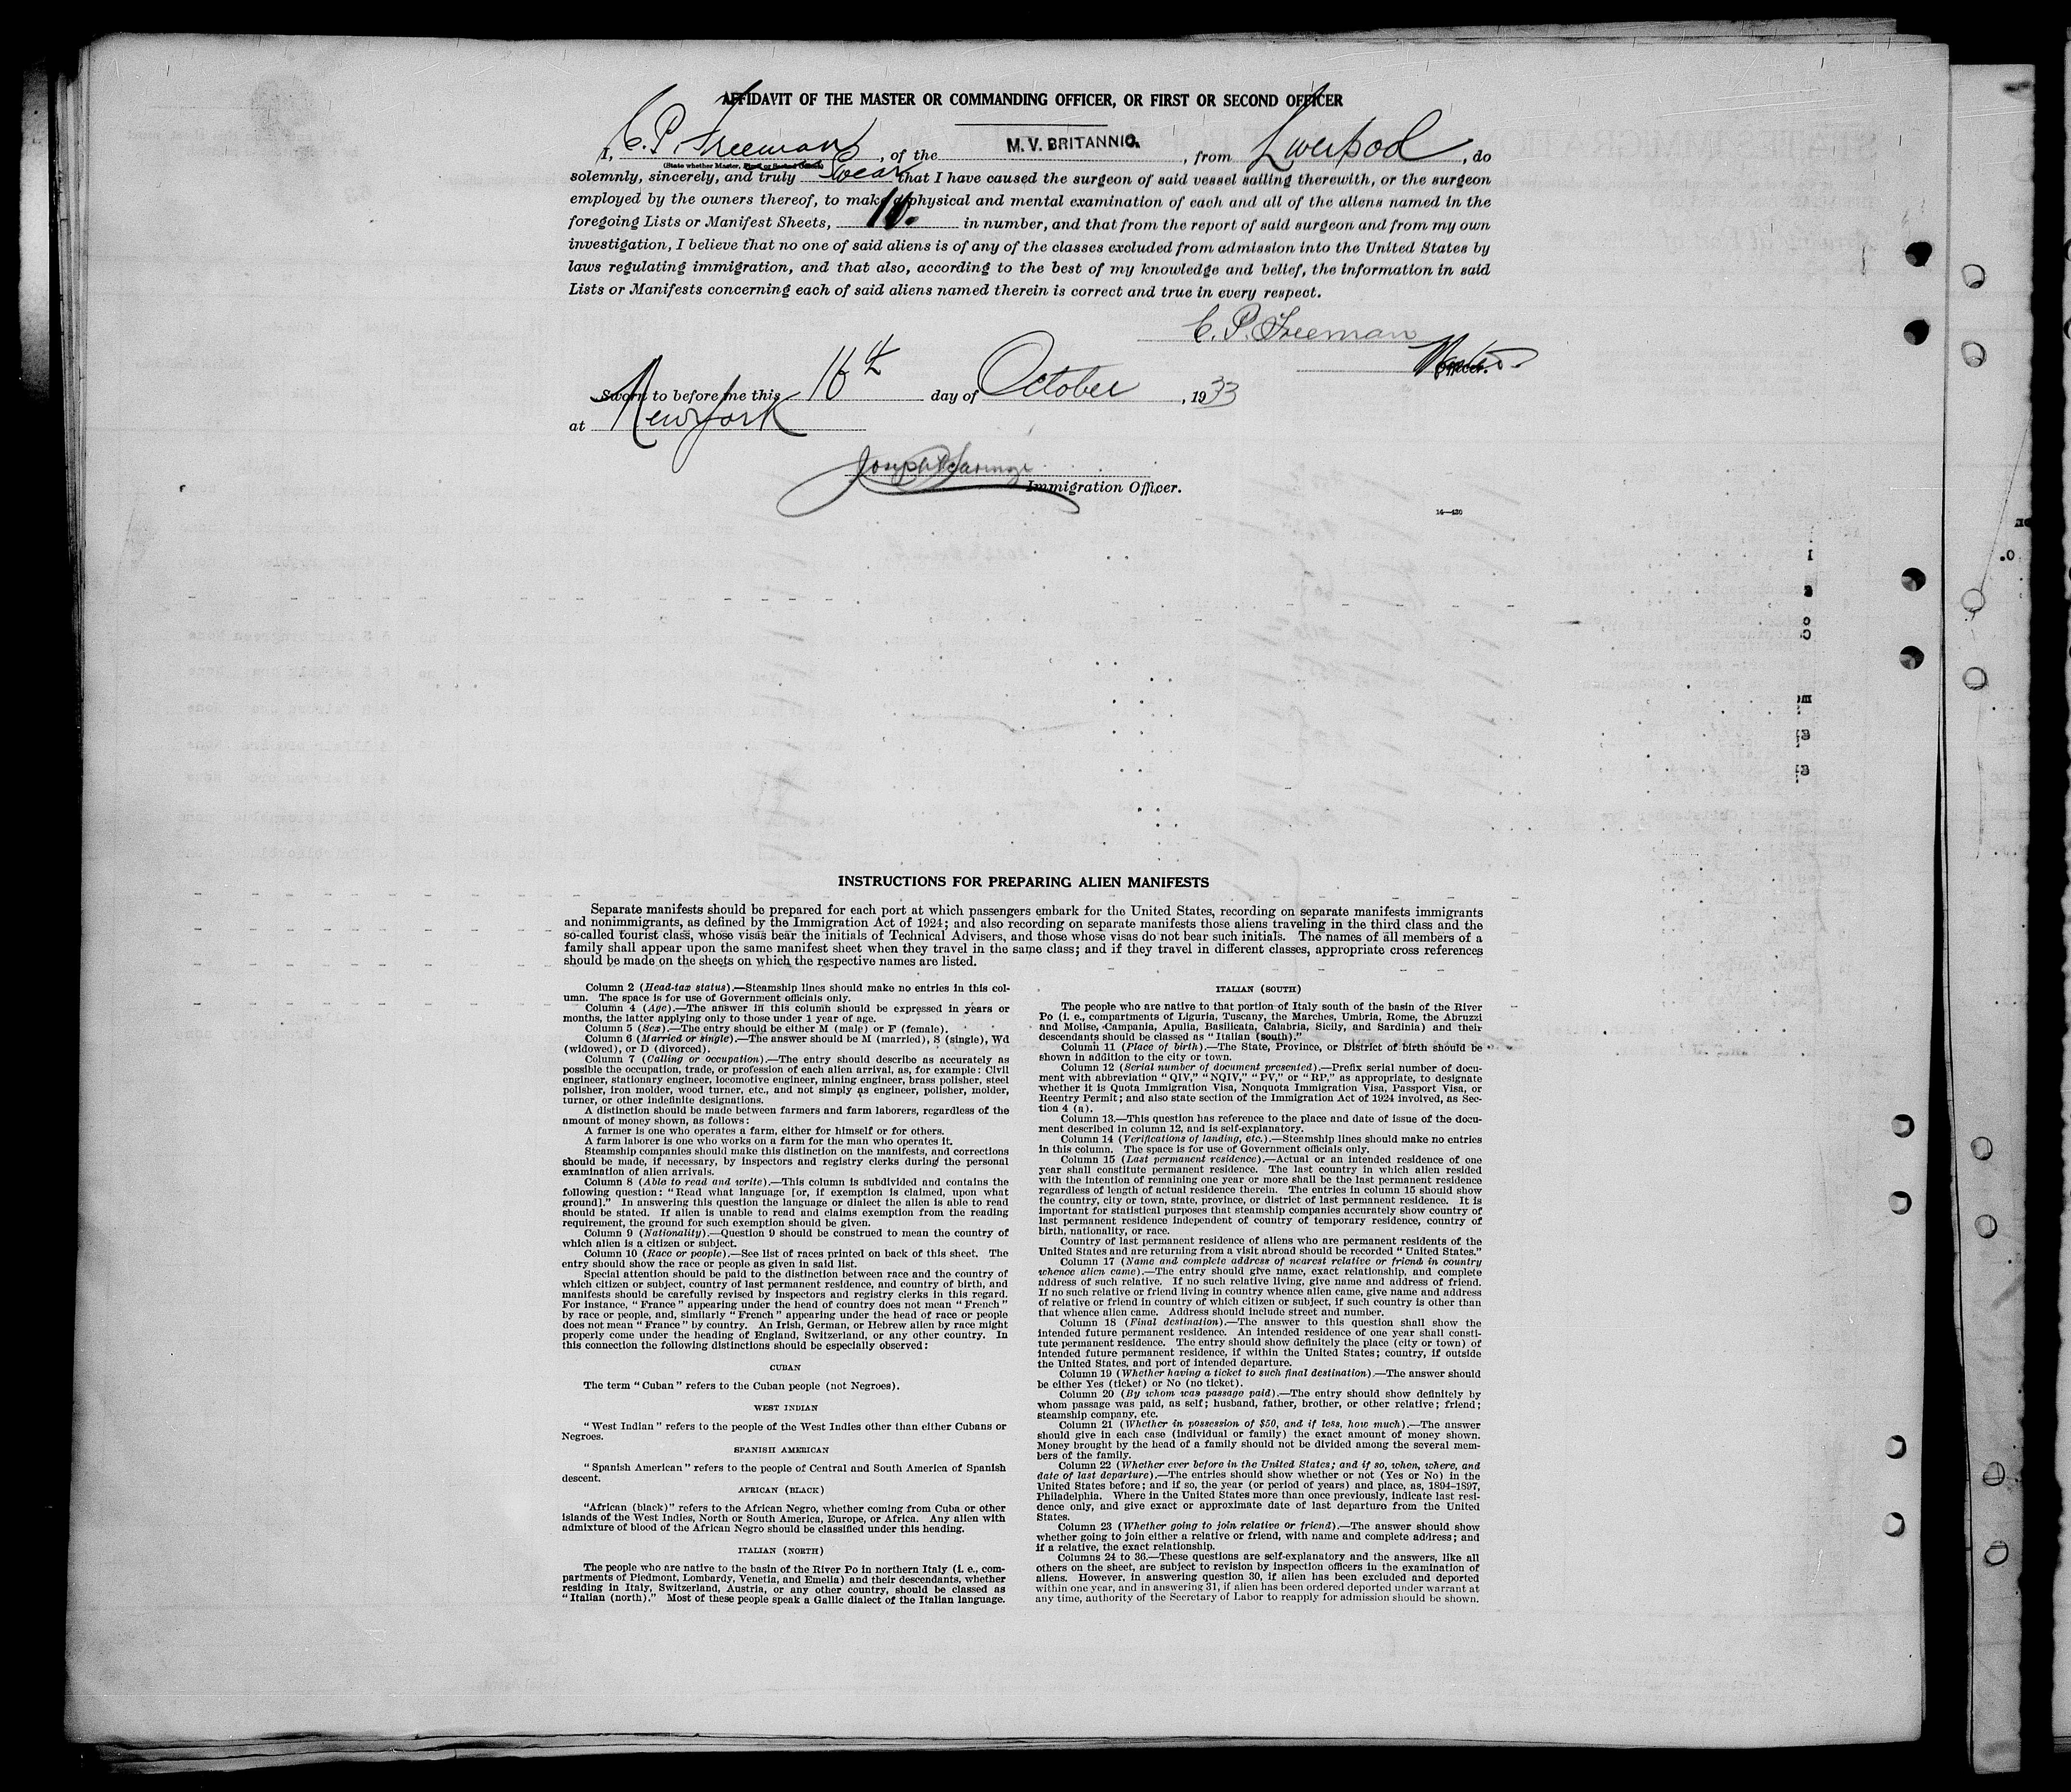 AFFIDAVIT OF THE MASTER OR COMMANDING OFFICER, OR FIRST OR SECOND OFFICER
I, C. P. Freeman, of the M. V. BRITANNIC. , from Liverpool, do
(State whether Master, First or Second Officer)
solemnly, sincerely, and truly Swear that I have caused the surgeon of said vessel sailing therewith, or the surgeon
employed by the owners thereof, to make a physical and mental examination of each and all of the aliens named in the
foregoing Lists or Manifest Sheets, in number, and that from the report of said surgeon and from my own
investigation, I believe that no one of said aliens is of any of the classes excluded from admission into the United States by
laws regulating immigration, and that also, according to the best of my knowledge and belief, the information in said
Lists or Manifests concerning each of said aliens named therein is correct and true in every respect.
C. P. Freeman
Master
Officer.
Sworn to before me this 16th day of October, 1933
at New York
Immigration Officer.
14—430
INSTRUCTIONS FOR PREPARING ALIEN MANIFESTS
Separate manifests should be prepared for each port at which passengers embark for the United States, recording on separate manifests immigrants
and nonimmigrants, as defined by the Immigration Act of 1924; and also recording on separate manifests those aliens traveling in the third class and the
so-called tourist class, whose visas bear the initials of Technical Advisers, and those whose visas do not bear such initials. The names of all members of a
family shall appear upon the same manifest sheet when they travel in the same class; and if they travel in different classes, appropriate cross references
should be made on the sheets on which the respective names are listed.
Column 2 (Head-tax status).—Steamship lines should make no entries in this col-
umn. The space is for use of Government officials only.
Column 4 (Age).—The answer in this column should be expressed in years or
months, the latter applying only to those under 1 year of age.
Column 5 (Sex).—The entry should be either M (male) or F (female).
Column 6 (Married or single).—The answer should be M (married), S (single), Wd
(widowed), or D (divorced).
Column 7 (Calling or occupation).—The entry should describe as accurately as
possible the occupation, trade, or profession of each alien arrival, as, for example: Civil
engineer, stationary engineer, locomotive engineer, mining engineer, brass polisher, steel
polisher, iron molder, wood turner, etc., and not simply as engineer, polisher, molder,
turner, or other indefinite designations.
A distinction should be made between farmers and farm laborers, regardless of the
amount of money shown, as follows:
A farmer is one who operates a farm, either for himself or for others.
A farm laborer is one who works on a farm for the man who operates it.
Steamship companies should make this distinction on the manifests, and corrections
should be made, if necessary, by inspectors and registry clerks during the personal
examination of alien arrivals.
Column 8 (Able to read and write).—This column is subdivided and contains the
following question: "Read what language [or, if exemption is claimed, upon what
ground]." In answering this question the language or dialect the alien is able to read
should be stated. If alien is unable to read and claims exemption from the reading
requirement, the ground for such exemption should be given.
Column 9 (Nationality).—Question 9 should be construed to mean the country of
which alien is a citizen or subject.
Column 10 (Race or people).—See list of races printed on back of this sheet. The
entry should show the race or people as given in said list.
Special attention should be paid to the distinction between race and the country of
which citizen or subject, country of last permanent residence, and country of birth, and
manifests should be carefully revised by inspectors and registry clerks in this regard.
For instance, "France" appearing under the head of country does not mean "French"
by race or people, and, similarly "French" appearing under the head of race or people
does not mean "France" by country. An Irish, German, or Hebrew alien by race might
properly come under the heading of England, Switzerland, or any other country. In
this connection the following distinctions should be especially observed:
CUBAN
The term "Cuban" refers to the Cuban people (not Negroes).
WEST INDIAN
"West Indian" refers to the people of the West Indies other than either Cubans or
Negroes.
SPANISH AMERICAN
"Spanish American" refers to the people of Central and South America of Spanish
descent.
AFRICAN (BLACK)
"African (black)" refers to the African Negro, whether coming from Cuba or other
islands of the West Indies, North or South America, Europe, or Africa. Any alien with
admixture of blood of the African Negro should be classified under this heading.
ITALIAN (NORTH)
The people who are native to the basin of the River Po in northern Italy (i. e., com-
partments of Piedmont, Lombardy, Venetia, and Emelia) and their descendants, whether
residing in Italy, Switzerland, Austria, or any other country, should be classed as
"Italian (north)." Most of these people speak a Gallic dialect of the Italian language.
ITALIAN (SOUTH)
The people who are native to that portion of Italy south of the basin of the River
Po (i. e., compartments of Liguria, Tuscany, the Marches, Umbria, Rome, the Abruzzi
and Molise, Campania, Apulia, Basilicata, Calabria, Sicily, and Sardinia) and their
descendants should be classed as "Italian (south)."
Column 11 (Place of birth).—The State, Province, or District of birth should be
shown in addition to the city or town.
Column 12 (Serial number of document presented).—Prefix serial number of docu-
ment with abbreviation "QIV," "NQIV," "PV," or "RP," as appropriate, to designate
whether it is Quota Immigration Visa, Nonquota Immigration Visa, Passport Visa, or
Reentry Permit; and also state section of the Immigration Act of 1924 involved, as Sec-
tion 4 (a).
Column 13.—This question has reference to the place and date of issue of the docu-
ment described in column 12, and is self-explanatory.
Column 14 (Verifications of landing, etc.).—Steamship lines should make no entries
in this column. The space is for use of Government officials only.
Column 15 (Last permanent residence).—Actual or an intended residence of one
year shall constitute permanent residence. The last country in which alien resided
with the intention of remaining one year or more shall be the last permanent residence
regardless of length of actual residence therein. The entries in column 15 should show
the country, city or town, state, province, or district of last permanent residence. It is
important for statistical purposes that steamship companies accurately show country of
last permanent residence independent of country of temporary residence, country of
birth, nationality, or race.
Country of last permanent residence of aliens who are permanent residents of the
United States and are returning from a visit abroad should be recorded "United States."
Column 17 (Name and complete address of nearest relative or friend in country
whence alien came).—The entry should give name, exact relationship, and complete
address of such relative. If no such relative living, give name and address of friend.
If no such relative or friend living in country whence alien came, give name and address
of relative or friend in country of which citizen or subject, if such country is other than
that whence alien came. Address should include street and number.
Column 18 (Final destination).—The answer to this question shall show the
intended future permanent residence. An intended residence of one year shall consti-
tute permanent residence. The entry should show definitely the place (city or town) of
intended future permanent residence, if within the United States; country, if outside
the United States, and port of intended departure.
Column 19 (Whether having a ticket to such final destination).—The answer should
be either Yes (ticket) or No (no ticket).
Column 20 (By whom was passage paid).—The entry should show definitely by
whom passage was paid, as self; husband, father, brother, or other relative; friend;
steamship company, etc.
Column 21 (Whether in possession of $50, and if less, how much).—The answer
should give in each case (individual or family) the exact amount of money shown.
Money brought by the head of a family should not be divided among the several mem-
bers of the family.
Column 22 (Whether ever before in the United States; and if so, when, where, and
date of last departure).—The entries should show whether or not (Yes or No) in the
United States before; and if so, the year (or period of years) and place, as, 1894-1897,
Philadelphia. Where in the United States more than once previously, indicate last resi-
dence only, and give exact or approximate date of last departure from the United
States.
Column 23 (Whether going to join relative or friend).—The answer should show
whether going to join either a relative or friend, with name and complete address; and
if a relative, the exact relationship.
Columns 24 to 36.—These questions are self-explanatory and the answers, like all
others on the sheet, are subject to revision by inspection officers in the examination of
aliens. However, in answering question 30, if alien has been excluded and deported
within one year, and in answering 31, if alien has been ordered deported under warrant at
any time, authority of the Secretary of Labor to reapply for admission should be shown.